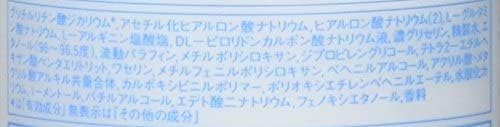 グリチルリチン酸ジカリウム*、アセチル化ヒアルロン酸ナトリウム、ヒアルロン酸ナトリウム(2)、L-グルタミ
ン酸ナトリウム、L-アルギニン塩酸塩、DL-ピロリドンカルボン酸ナトリウム液、濃グリセリン、精製水、エ
タノール(96〜96.5度)、流動パラフィン、メチルポリシロキサン、ジプロピレングリコール、テトラ2-エチルヘ
キサン酸ペンタエリトリット、ワセリン、メチルフェニルポリシロキサン、ベヘニルアルコール、アクリル酸・メタ
クリル酸アルキル共重合体、カルボキシビニルポリマー、ポリオキシエチレンベヘニルエーテル、水酸化カ
リウム、l-メントール、バチルアルコール、エデト酸二ナトリウム、フェノキシエタノール、香料
*は「有効成分」 無表示は「その他の成分」